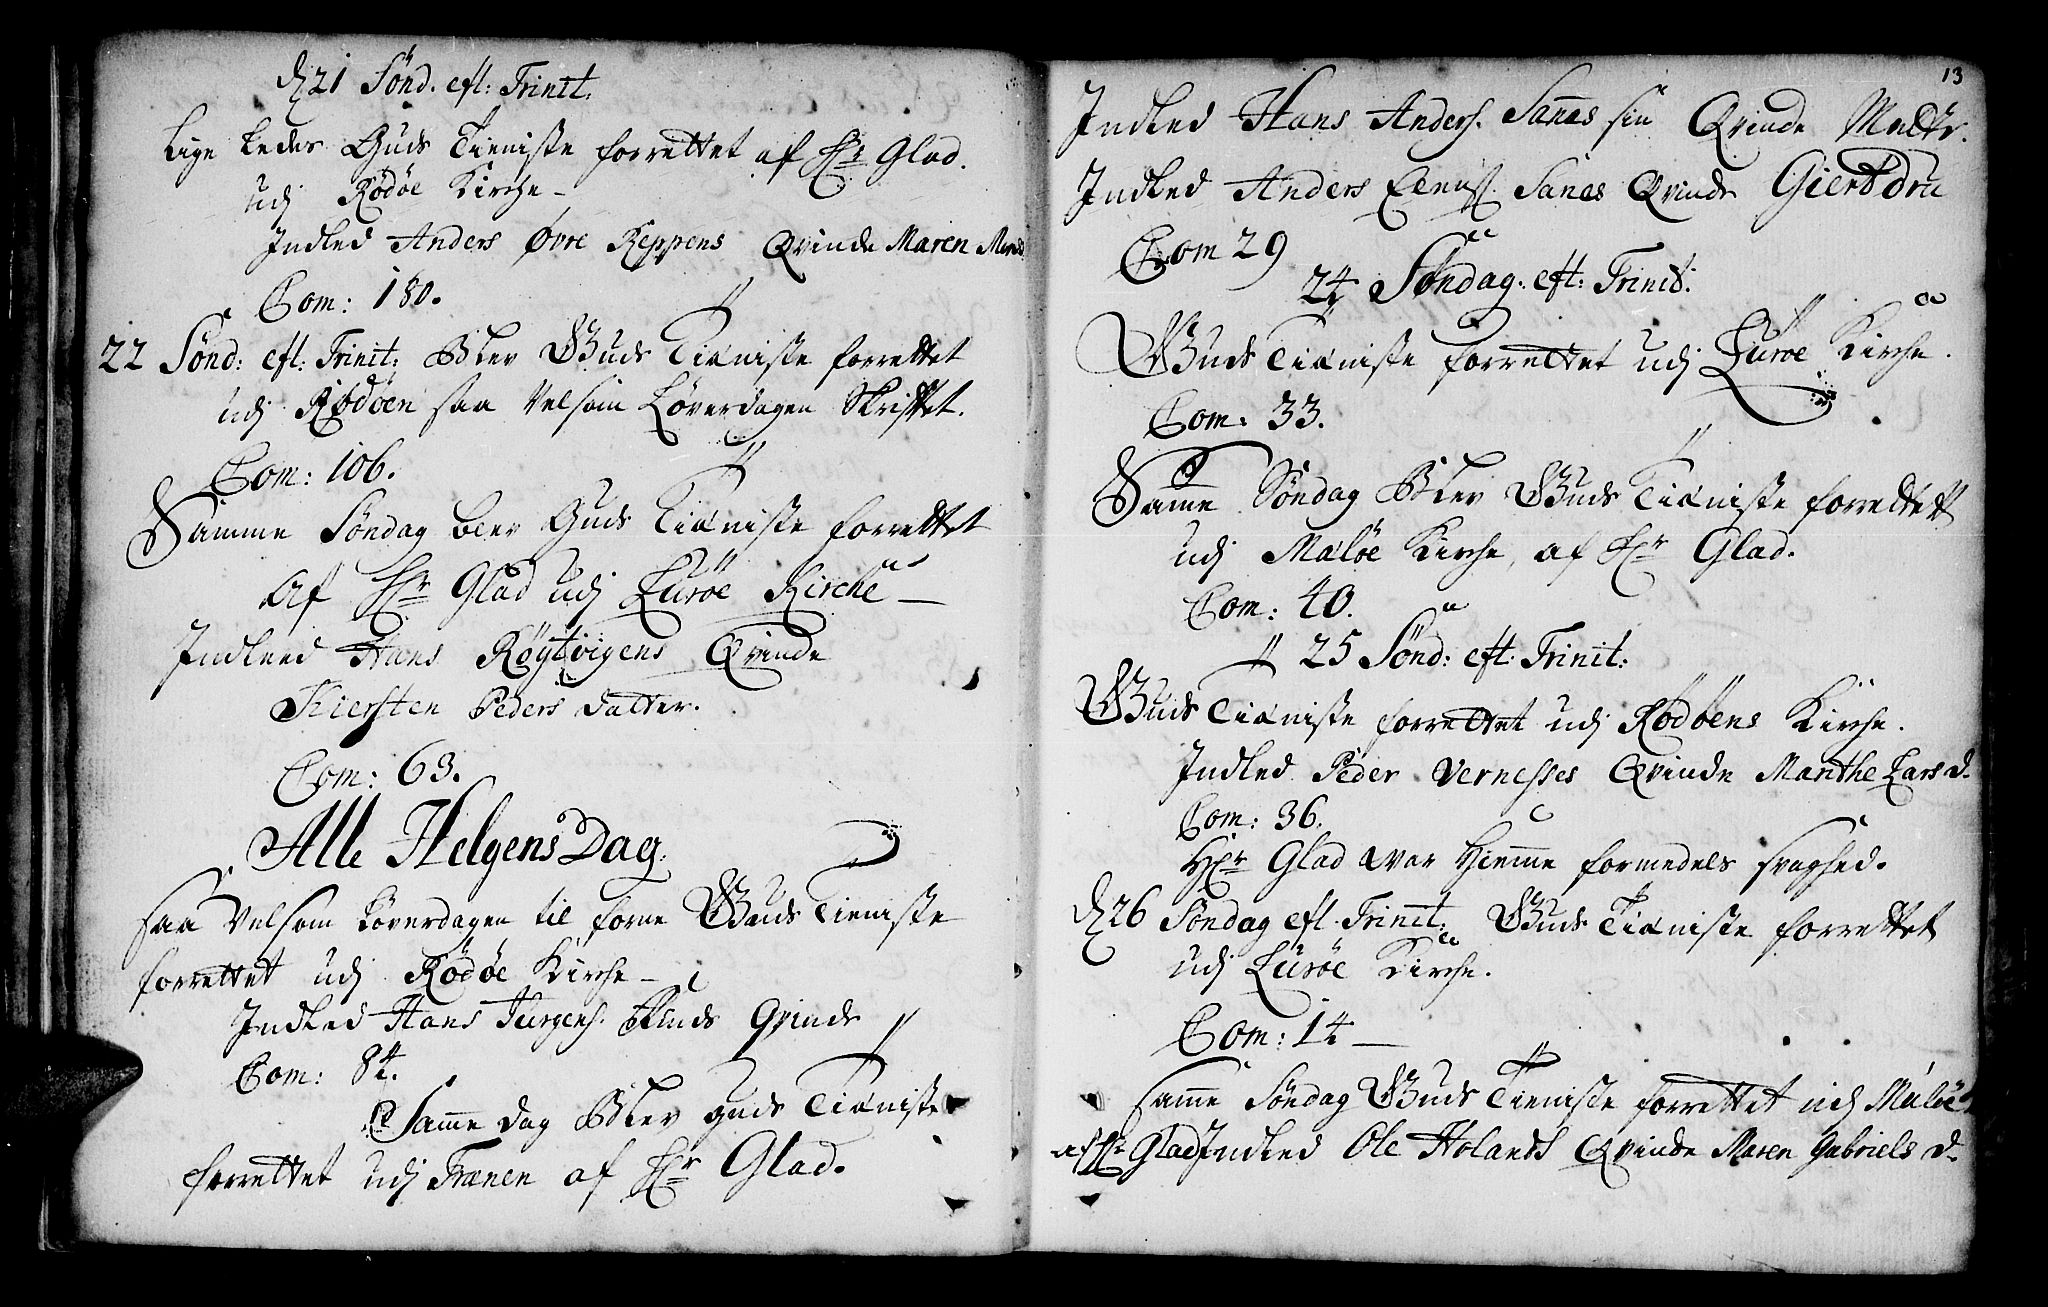 d. 21 Sönd. eft: Trinit:
Lige ledes Guds Tieniste forrettet af Hr Glad.
udj Rödöe Kirche –
Indled Anders Øvre Reppens Qvinde Maren
Com: 180.
22 Sönd: eft: Trinit: Blev Guds Tieniste forrettet
udj Rödöen saa velsom Löverdagen Skriftet.
Com: 106.
Samme Söndag blev Guds Tieniste forrettet
Af Hr Glad udj Luröe Kirche –
Indleed Hans Röytvigens Qvinde
Kiersten Peders datter.
Com: 63.
Alle Helgens Dag.
saa velsom Löverdagen til forne Guds Tieniste
forrettet udj Rödöe Kirche –
Indled Hans Jurgens. Qvinde
Com: 84.
Samme dag Blev guds Tieniste
forrettet udj Trænen af Hr Glad.
13
Indled Hans Anders. Sannes sin Qvinde
Indled Anders Sanes Qvinde Giertdru
Com 29
24 Söndag: eft: Trinit:
Guds Tieniste forrettet udj Luröe Kirche.
Com: 33.
Samme Söndag Blev Guds Tieniste forrettet
udj Mælöe Kirche, af Hr Glad.
Com: 40.
25 Sönd: eft: Trinit:
Guds Tieniste forrettet udj Rödöens Kirche.
Indled Peder Vernesses Qvinde Marithe Lars d.
Com: 36.
Hr Glad war Hiemme formedels svaghed.
d. 26 Söndag eft. Trinit: Guds Tieniste forrettet
udj Luröe Kirche.
Com: 14 –
samme Söndag Guds Tieniste forrettet udj Mælöe
af Hr Glad Indled Ole Holands Qvinde Maren Gabriels d.